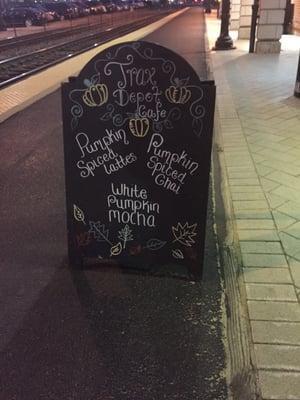 Trax
Depot
Cafe
Pumpkin
Spiced
lattes
Pumpkin
Spiced
Chai
White
Pumpkin
mocha